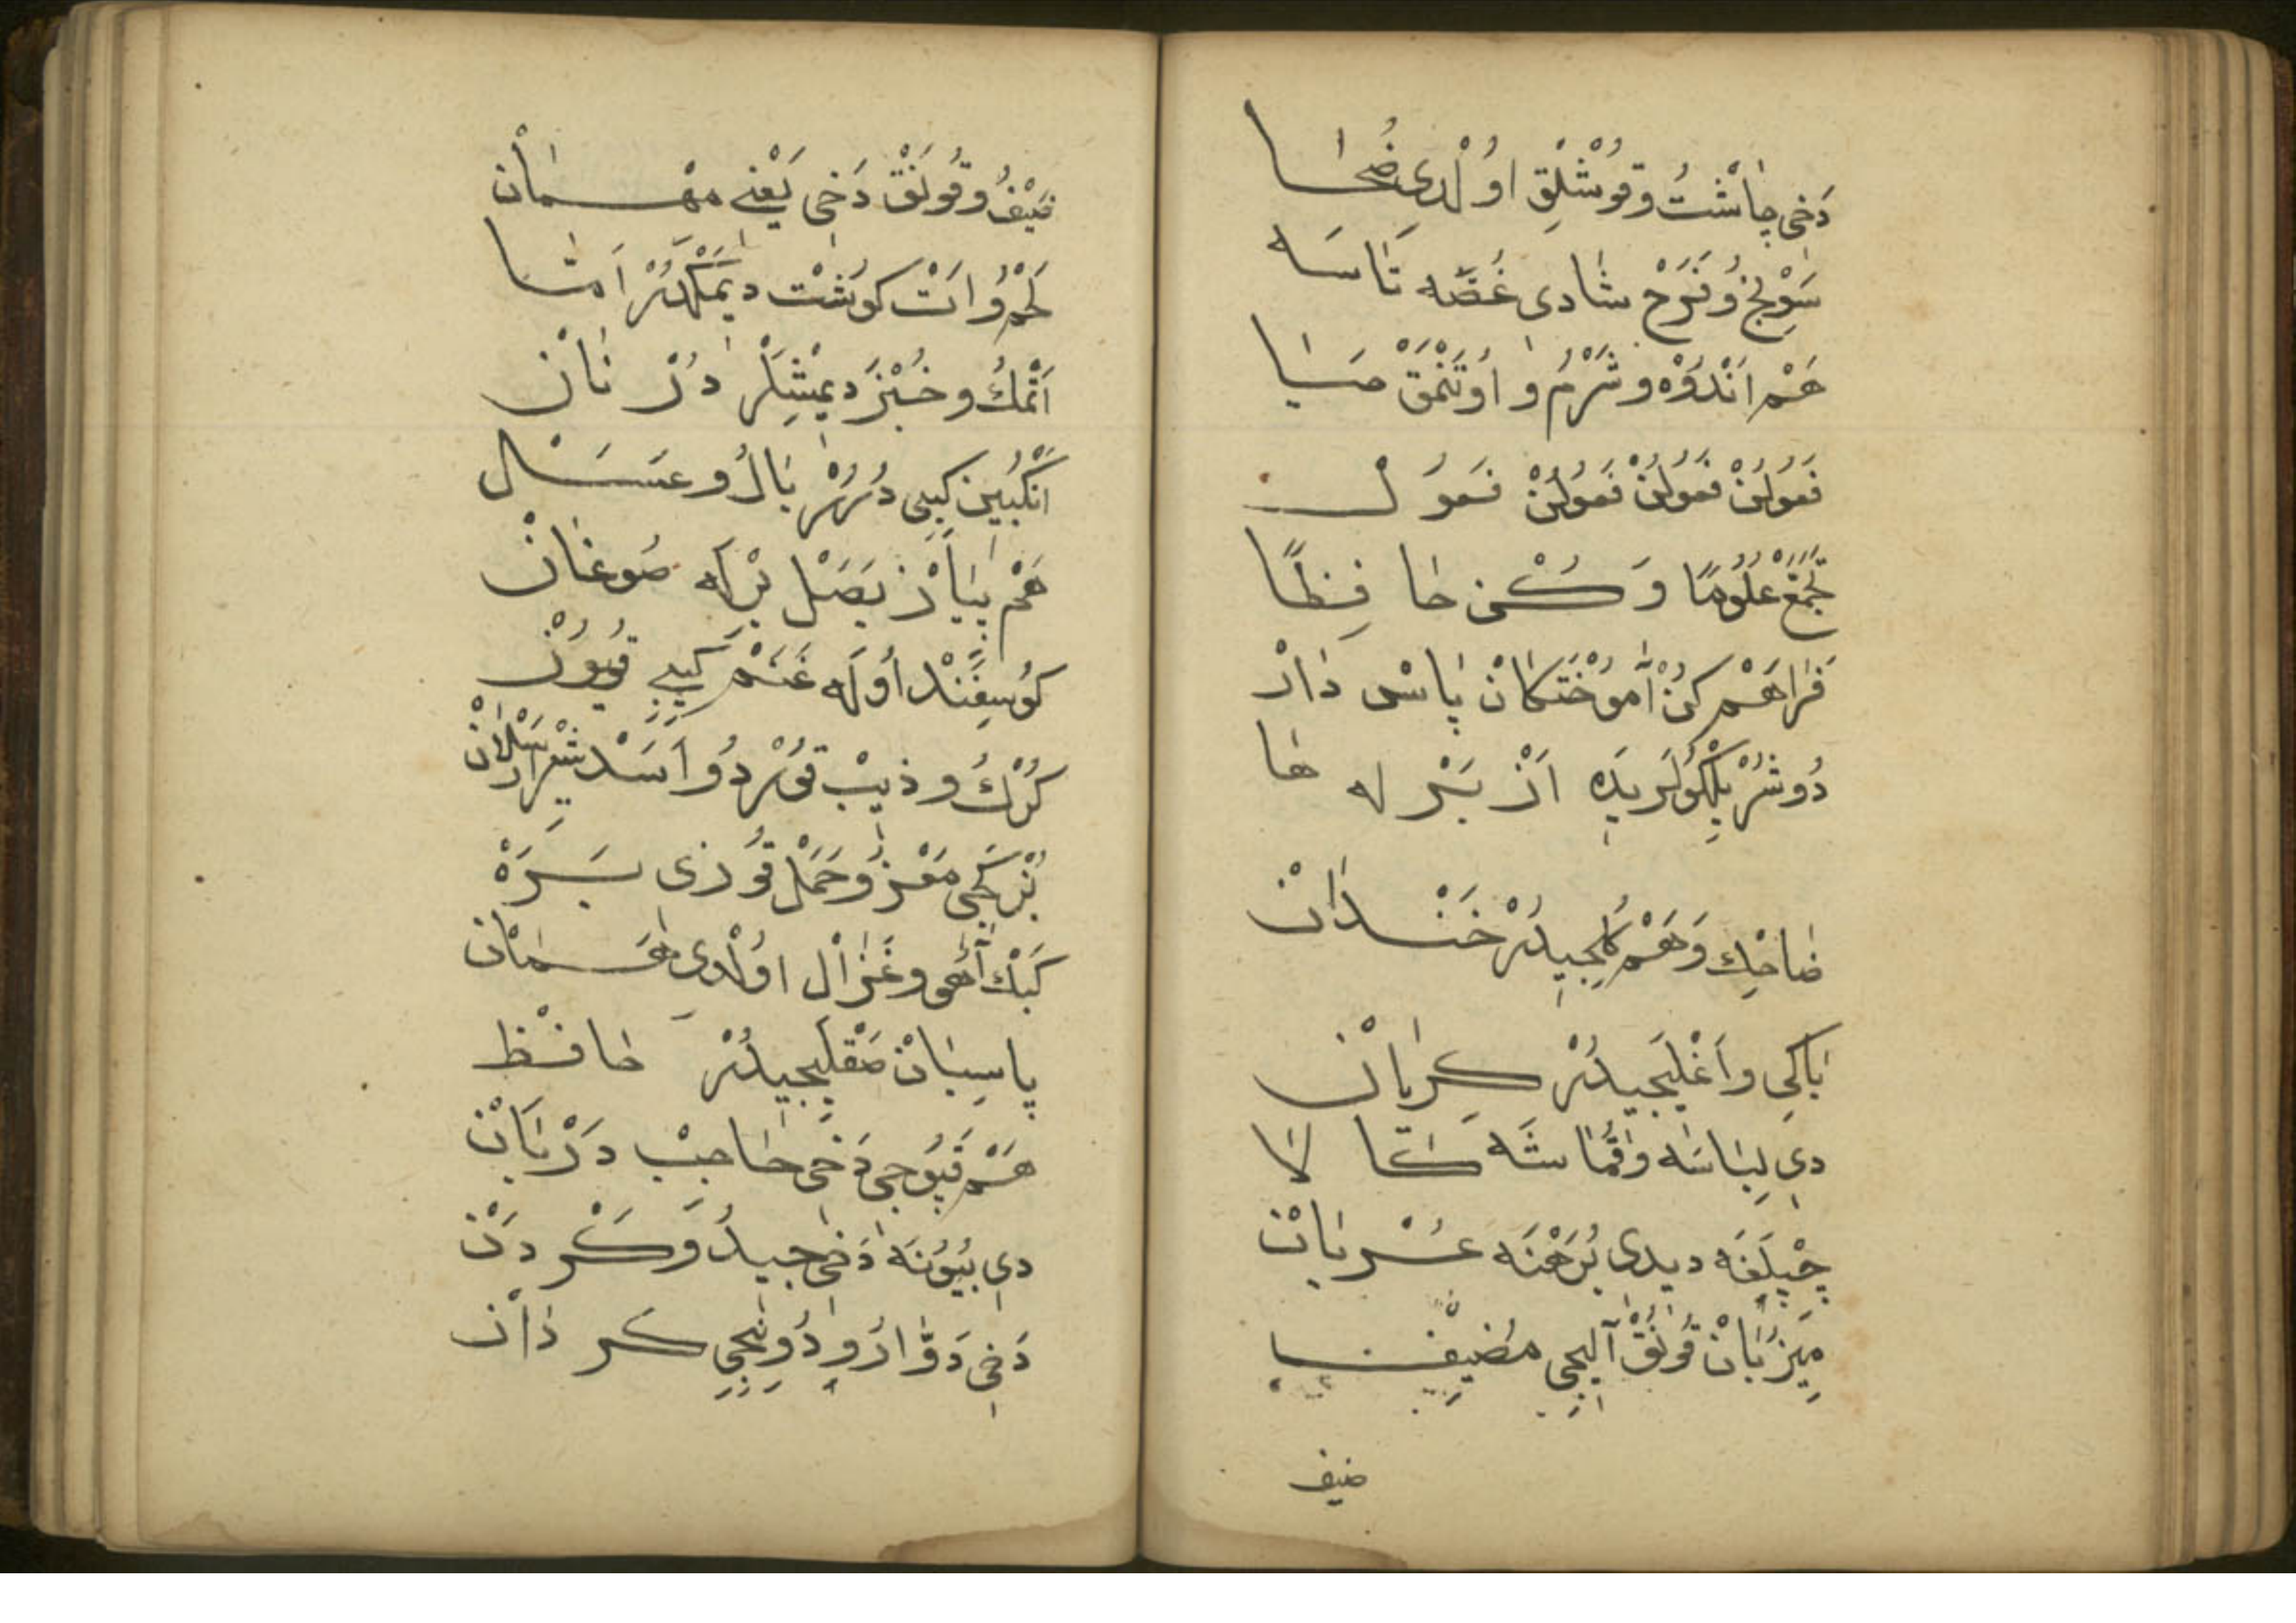 دَخِی چَاشْتُ وقُوشْلِقِ اوُلْدِی ضُحَا
سَوِنْجُ وُ فَرَحْ شَادِی غُصَّه تَاسَه
هَمْ اَنْدُوْه وشَرْمُ و اوُتَنْمَقْ حَیَا
فَعُولُنْ فَعُولُنْ فَعُولُنْ فَعُولْ
تَجَمَّعْ عُلُومًا وَكُنْ حَافِظًا
فَرَاهَمْ كُنْ آمُوخْتَكَانْ پَاسْ دَارْ
دُوشُرْ بِلْكُولَرِ یَدِه اَزْبَرْلَه هَا
ضَاحِك وَهَمْ كُلِجِیدُرْ خَنْدَانْ
بَاكِی وَاَغْلَیِجِیدُرْ كِرْیَانْ
دِی لِبَاسَه وقُمَاشَه كَالَا
چِپْلَغَه دیدی بُرَهْنَه عُرْیَانْ
مِیزْبَانْ قُونُقْ آلِیجِی مُضِیفْ
ضیف
ضَیْفُ وقُونَقْ دَخِی یَعْنِی مِهْمَانْ
لَحْمُ وُ اَتْ كُوشْت دِیمَكْدُرْ اَمَّا
اَتْمَكُ وخُبْزَ دِیمِشْلَرْ دُرْ نَانْ
اَنْكُبِین كِبِی دُرُرْ بَالُ وعَسَلْ
هَمْ پِیَازْ بَصَلْ بِرْلَه صُوغَانْ
كُوسِفَنْد اُولَه غَنَمْ كِیبِی قُیُونْ
كُرْكُ و ذِیبْ قُورْدُ وُ اَسَدْ شِیرْ اَرْسَلَانْ
بُزْ كَچِی مَعْزُ وُحَمَلْ قُوزِی بَرَهْ
كَبْك آهُی وغَزَالْ اوُلْدِی هَمَانْ
پاسِبَانْ صَقْلَیِجِیدُرْ حَافِظْ
هَمْ قَپُوجِی دَخِی حَاجِبْ دَرْبَانْ
دِی بُیُونَه دَخِی جِیدُ وَكَرْدَنْ
دَخِی دَوَّارُ وِ دُونِیجِی كَرْدَانْ